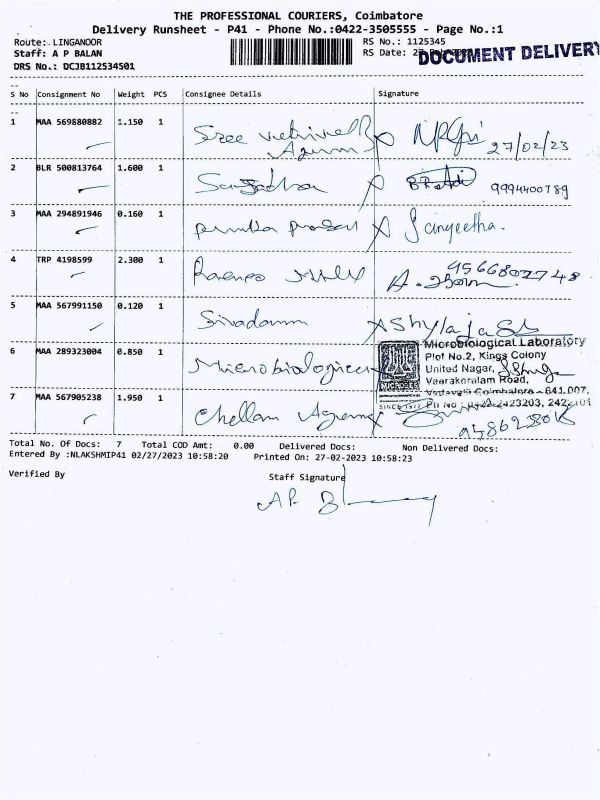 THE PROFESSIONAL COURIERS, Coimbatore
Delivery Runsheet - P41 - Phone No.:0422-3505555 - Page No.:1
Route: LINGANOOR
RS No.: 1125345
Staff: A P BALAN
RS Date: 27
DOCUMENT DELIVERY
DRS No.: DCJB112534501
S No Consignment No Weight PCS Consignee Details Signature
1 MAA 569880882 1.150 1 Sree 27/02/23
2 BLR 500813764 1.600 1 9994400789
3 MAA 294891946 0.160 1 Sangeetha.
4 TRP 4198599 2.300 1 9566802748
5 MAA 567991150 0.120 1 Shylaja
Microbiological Laboratory
Plot No.2, Kings Colony
6 MAA 289323004 0.850 1
United Nagar,
Veerakeralam Road,
Vadavalli Coimbatore - 641 007.
SINCE 1977 Ph No : 0422-2423203,
7 MAA 567905238 1.950 1 Chellam
Total No. Of Docs: 7 Total COD Amt: 0.00 Delivered Docs: Non Delivered Docs:
Entered By :NLAKSHMIP41 02/27/2023 10:58:20 Printed On: 27-02-2023 10:58:23
Verified By Staff Signature
A P